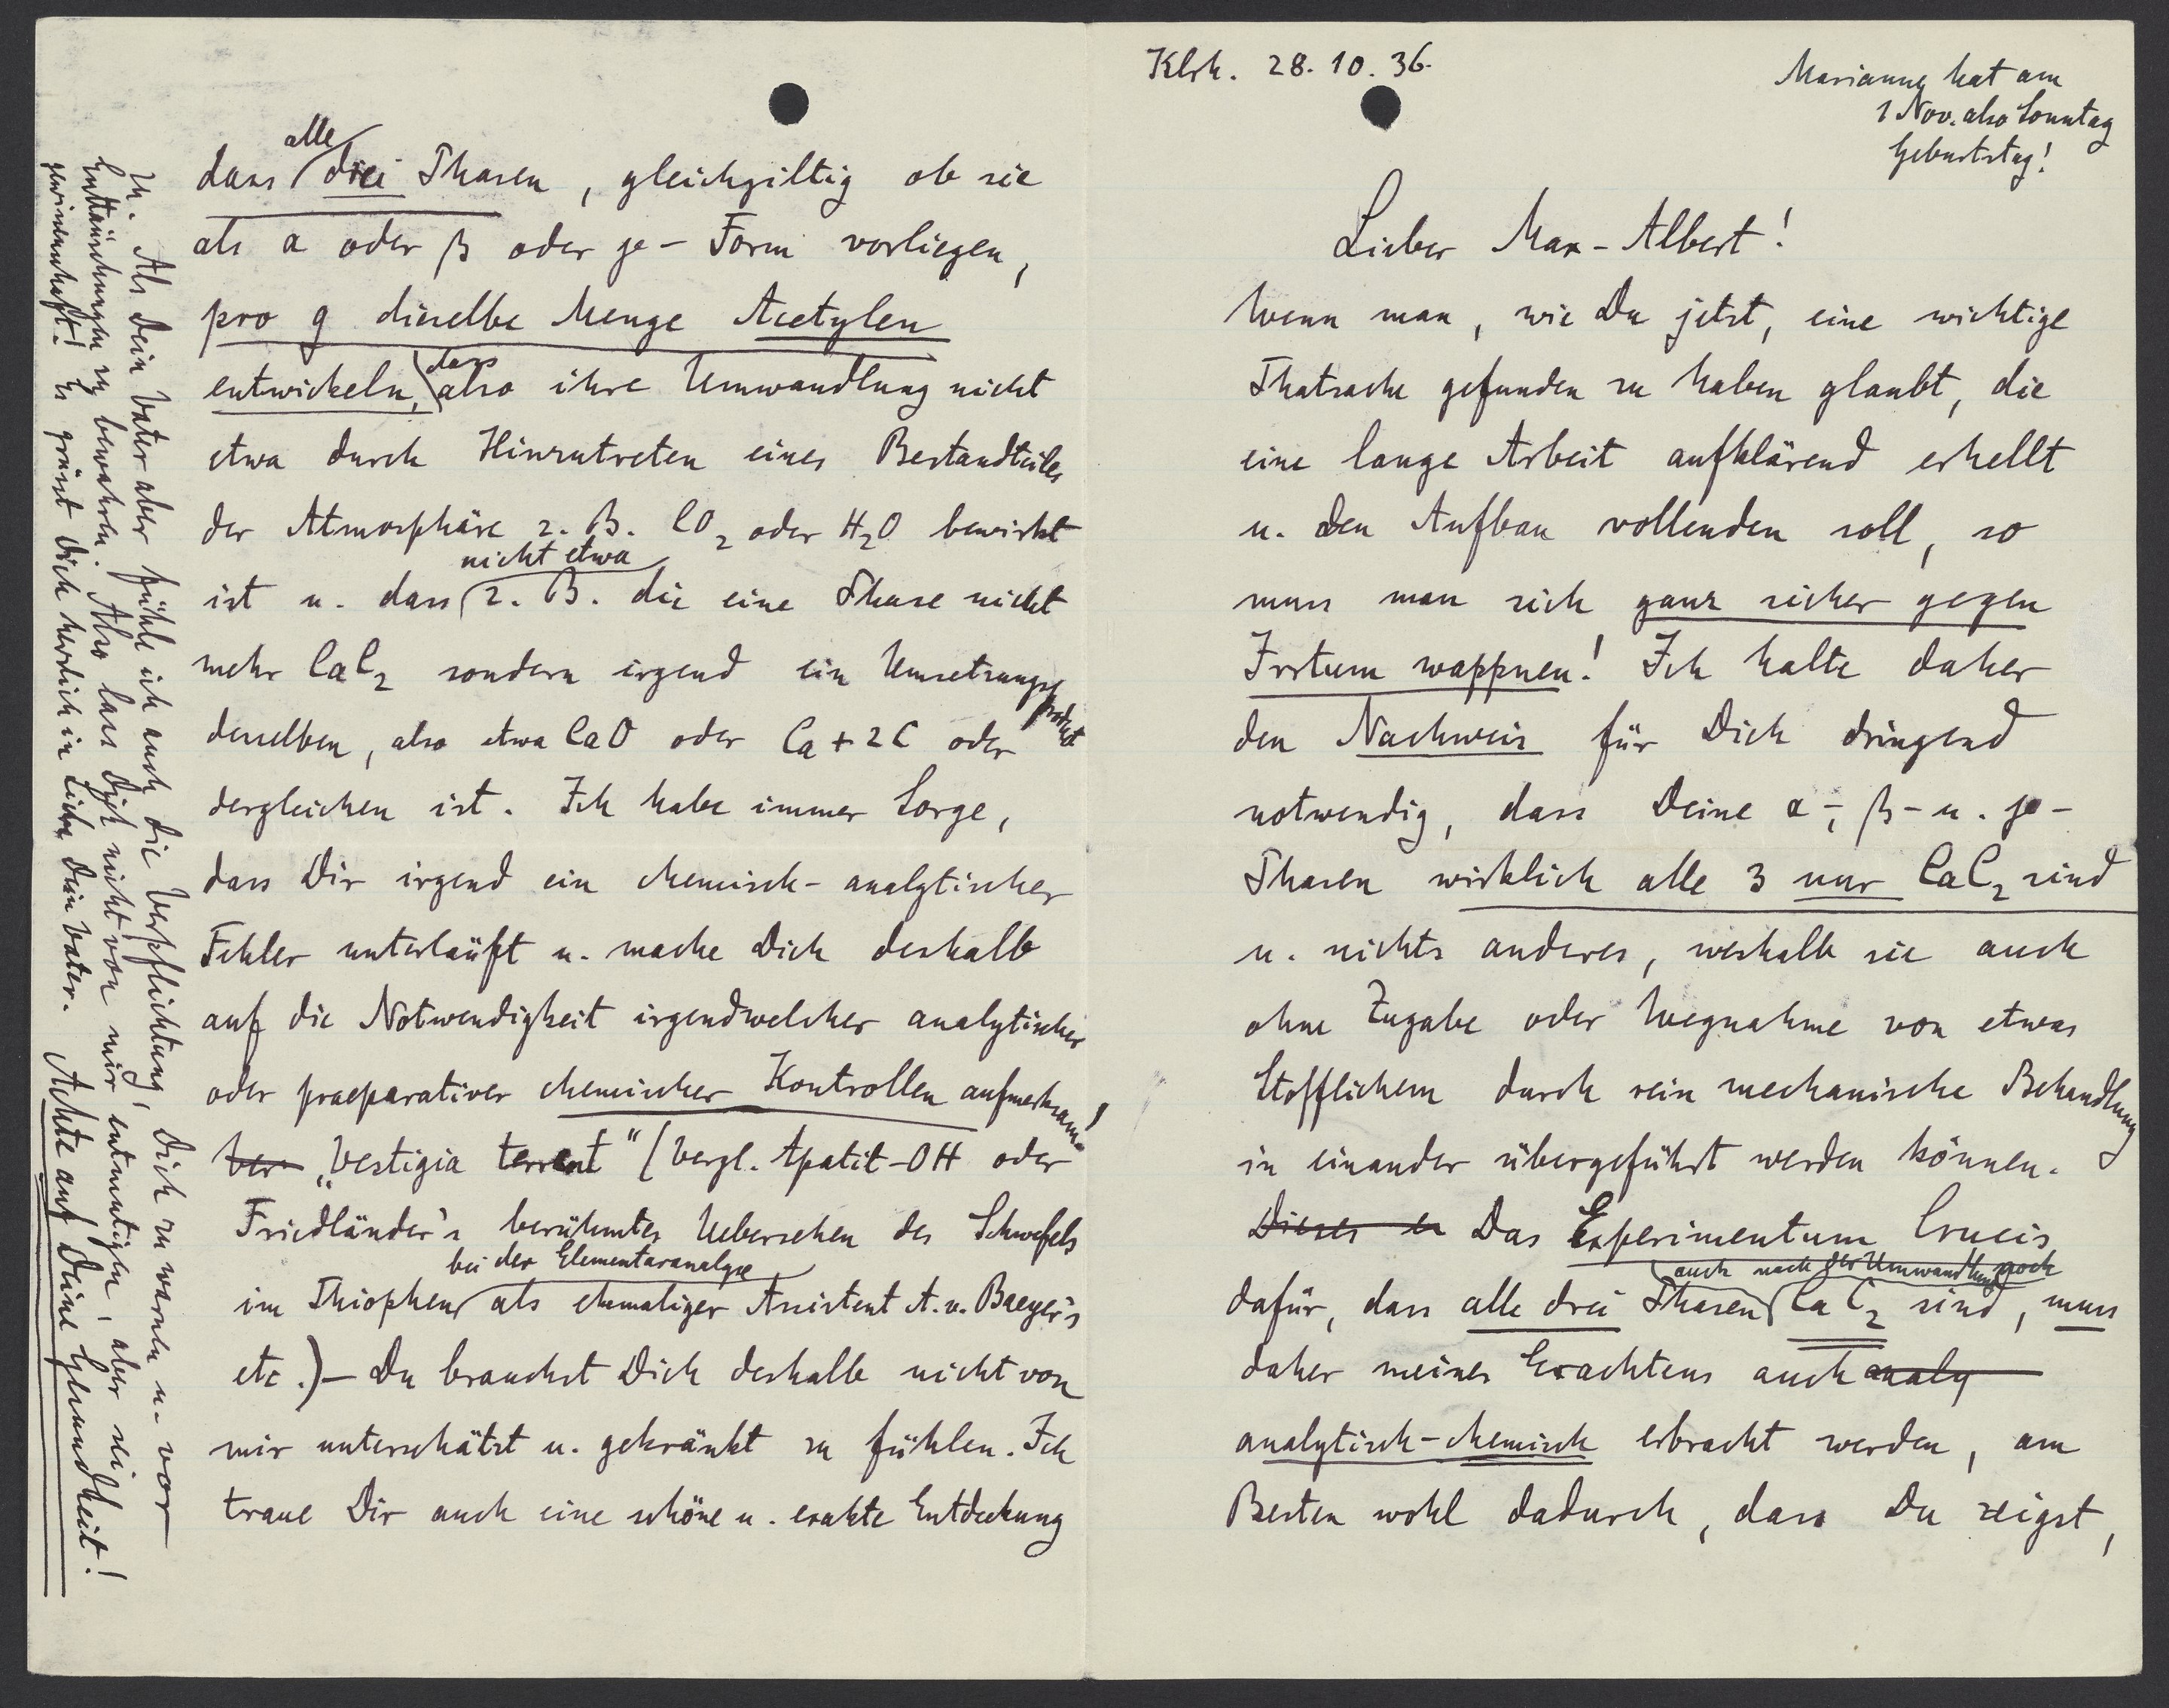 Klrh. 28. 10. 36.
Marianne hat am
1 Nov. also Sonntag
Geburtstag!
Lieber Max-Albert!
Wenn man, wie Du jetzt, eine wichtige
Thatsache gefunden zu haben glaubt, die
eine lange Arbeit aufklärend erhellt
u. den Aufbau vollenden soll, so
muss man sich ganz sicher gegen
Irrtum wappnen! Ich halte daher
den Nachweis für Dich dringend
notwendig, dass Deine α-, β- u. γ-
Phasen wirklich alle 3 nur CaC2 sind
u. nichts anderes, weshalb sie auch
ohne Zugabe oder Wegnahme von etwas
Stofflichem durch rein mechanische Behandlung
in einander übergeführt werden können.
Dieses er Das Experimentum Crucis
auch nach der Umwandlung noch
dafür, dass alle drei Phasen CaC2 sind, muss
daher meines Erachtens auch analy
analytisch-chemisch erbracht werden, am
Besten wohl dadurch, dass Du zeigst,
alle
dass drei Phasen, gleichgiltig ob sie
als α oder β oder γ-Form vorliegen,
pro g dieselbe Menge Acetylen
dass
entwickeln, also ihre Umwandlung nicht
etwa durch Hinzutreten eines Bestandteiles
der Atmosphäre z. B. CO2 oder H2O bewirkt
nicht etwa
ist u. dass z. B. die eine Phase nicht
mehr CaC2 sondern irgend ein Umsetzungsprodukt
desselben, also etwa CaO oder Ca + 2C oder
dergleichen ist. Ich habe immer Sorge,
dass Dir irgend ein chemisch-analytischer
Fehler unterläuft u. mache Dich deshalb
auf die Notwendigkeit irgendwelcher analytischer
oder praeparativer chemischer Kontrollen aufmerksam!
Ver- „Vestigia terrent" (Vergl. Apatit-OH oder
Friedländer's berühmtes Uebersehen des Schwefels
bei der Elementaranalyse
im Thiophen als ehmaliger Assistent A. v. Baeyer's
etc.) – Du brauchst Dich deshalb nicht von
mir unterschätzt u. gekränkt zu fühlen. Ich
traue Dir auch eine schöne u. exakte Entdeckung
zu. Als Dein Vater aber fühle ich auch die Verpflichtung, Dich zu warnen u. vor
Enttäuschungen zu bewahren. Also lass Dich nicht von mir entmutigen, aber sei
gewissenhaft! Es grüsst Dich herzlich in Liebe Dein Vater. Achte auf Deine Gesundheit!